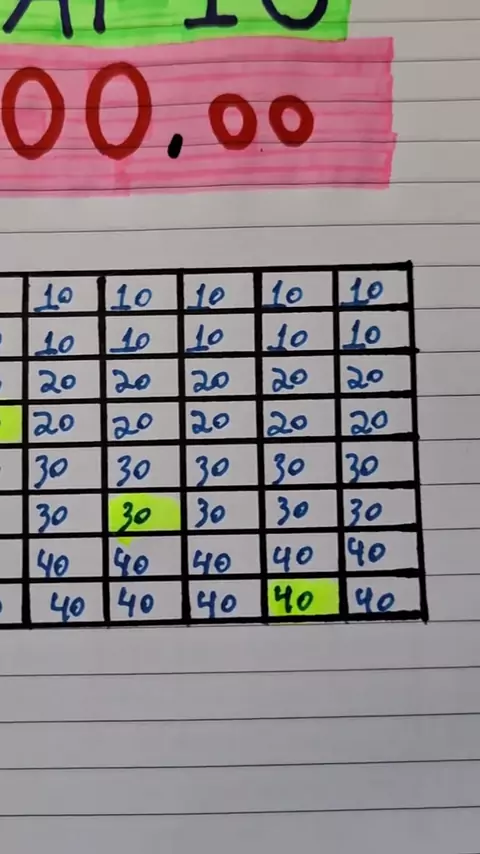 00.00
10 10 10 10 10
10 10 10 10 10
20 20 20 20 20
20 20 20 20 20
30 30 30 30 30
30 30 30 30 30
40 40 40 40 40
40 40 40 40 40